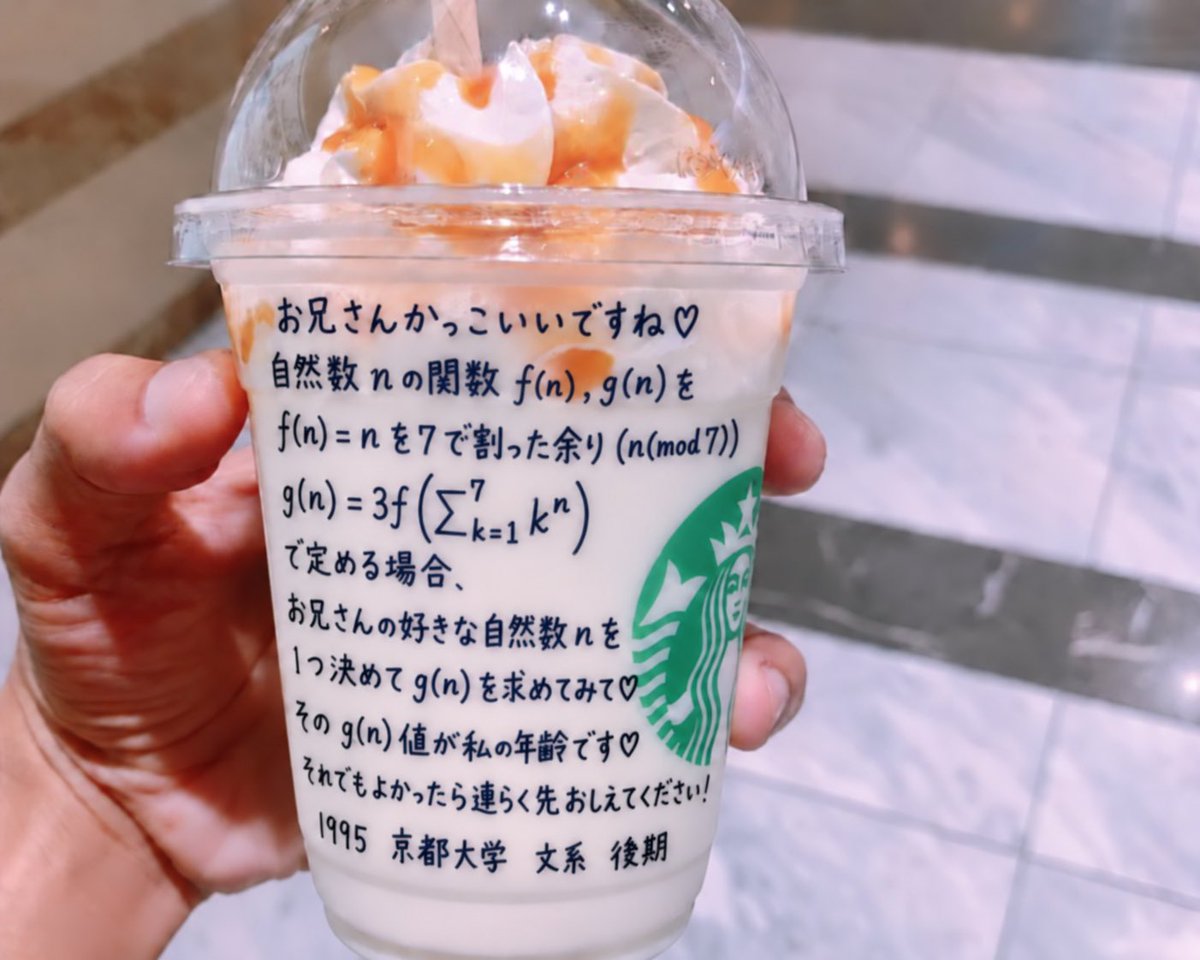 お兄さんかっこいいですね♡
自然数 n の関数 f(n), g(n) を
f(n) = n を7で割った余り (n(mod7))
g(n) = 3f(∑⁷ₖ₌₁ kⁿ)
で定める場合、
お兄さんの好きな自然数 n を
1つ決めて g(n) を求めてみて♡
その g(n) 値が私の年齢です♡
それでもよかったら連らく先おしえてください!
1995 京都大学 文系 後期